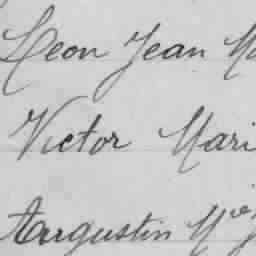 Leon Jean Ma
Victor Mari
Augustin Mie